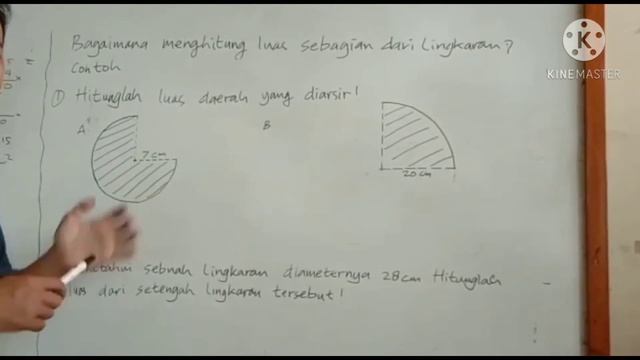 Bagaimana menghitung luas sebagian dari lingkaran?
Contoh
① Hitunglah luas daerah yang diarsir!
A
B
7 cm
20 cm
sebuah lingkaran diameternya 28 cm Hitunglah
luas dari setengah lingkaran tersebut!
K
KINEMASTER